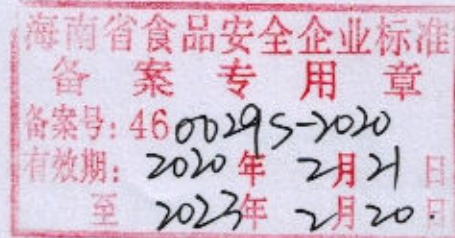 海南省食品安全企业标准
备案专用章
备案号:460029S-2020
有效期:2020年2月21日
至2023年2月20日